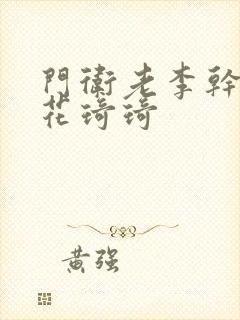 門衛老李幹
花琦琦
黃强